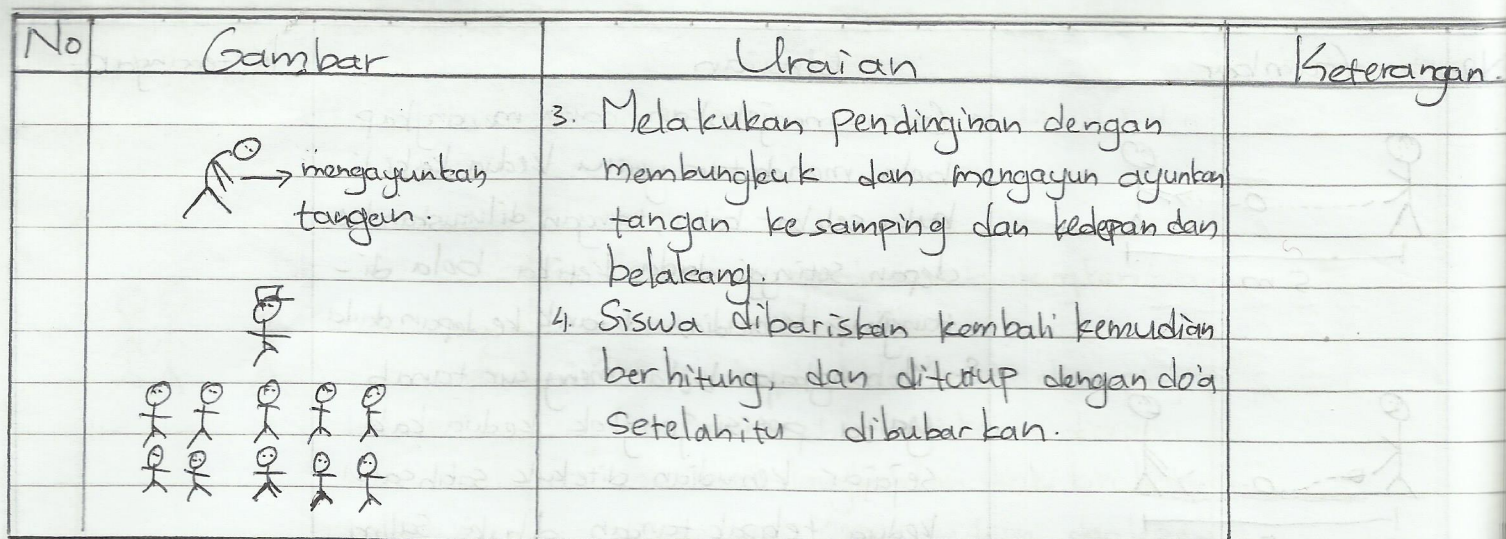 No Gambar Uraian Keterangan.
mengayunkan
tangan.
3. Melakukan pendinginan dengan
membungkuk dan mengayun ayunkan
tangan ke samping dan kedepan dan
belakang.
4. Siswa dibariskan kembali kemudian
berhitung, dan ditutup dengan do'a
setelahitu dibubarkan.